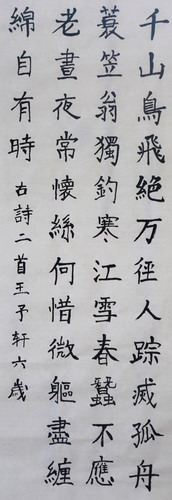 千山鳥飛絕万徑人踪滅孤舟
蓑笠翁獨釣寒江雪春蠶不應
老晝夜常懷絲何惜微軀盡纏
綿自有時
古詩二首王予軒六歲